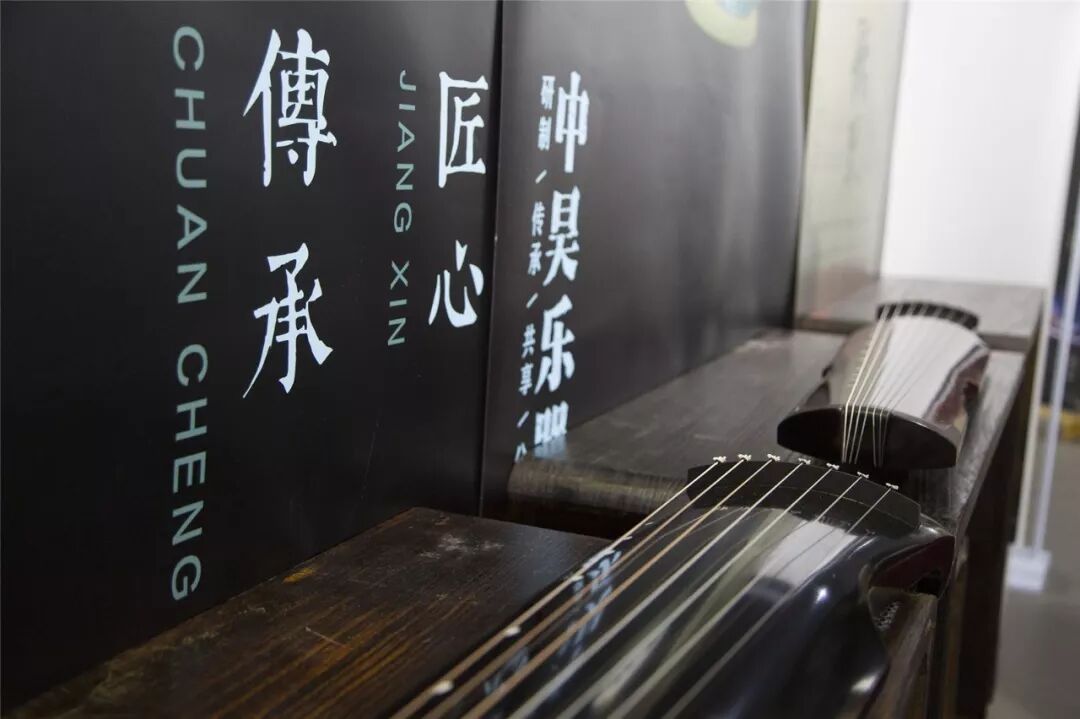 傳承
CHUAN CHENG
匠心
JIANG XIN
中昊乐器
研制/传承/共享/